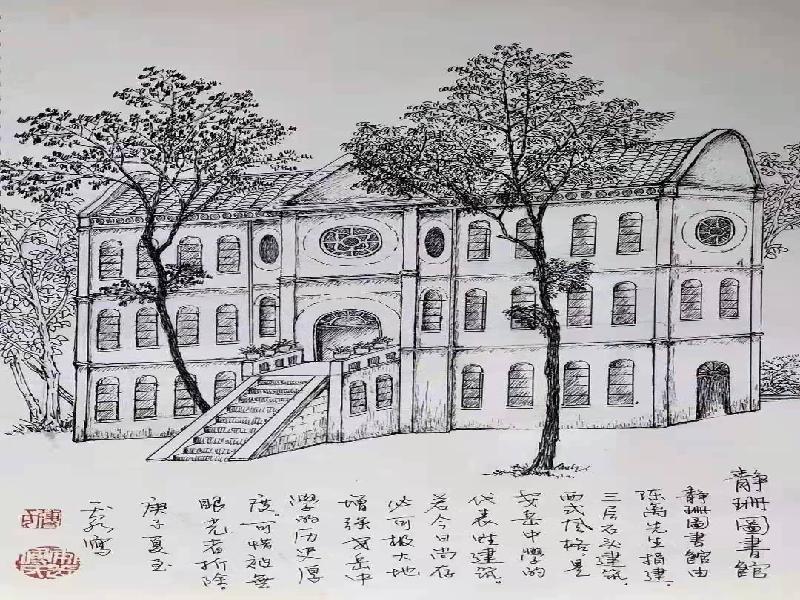 静珊圖書館
静珊圖書館由
陈离先生捐建.
三层石头建筑.
西式风格.是
安岳中學的
代表性建筑.
若今日尚存
必可极大地
增强安岳中
學的历史厚
度.可惜被無
眼光者拆除.
庚子夏至